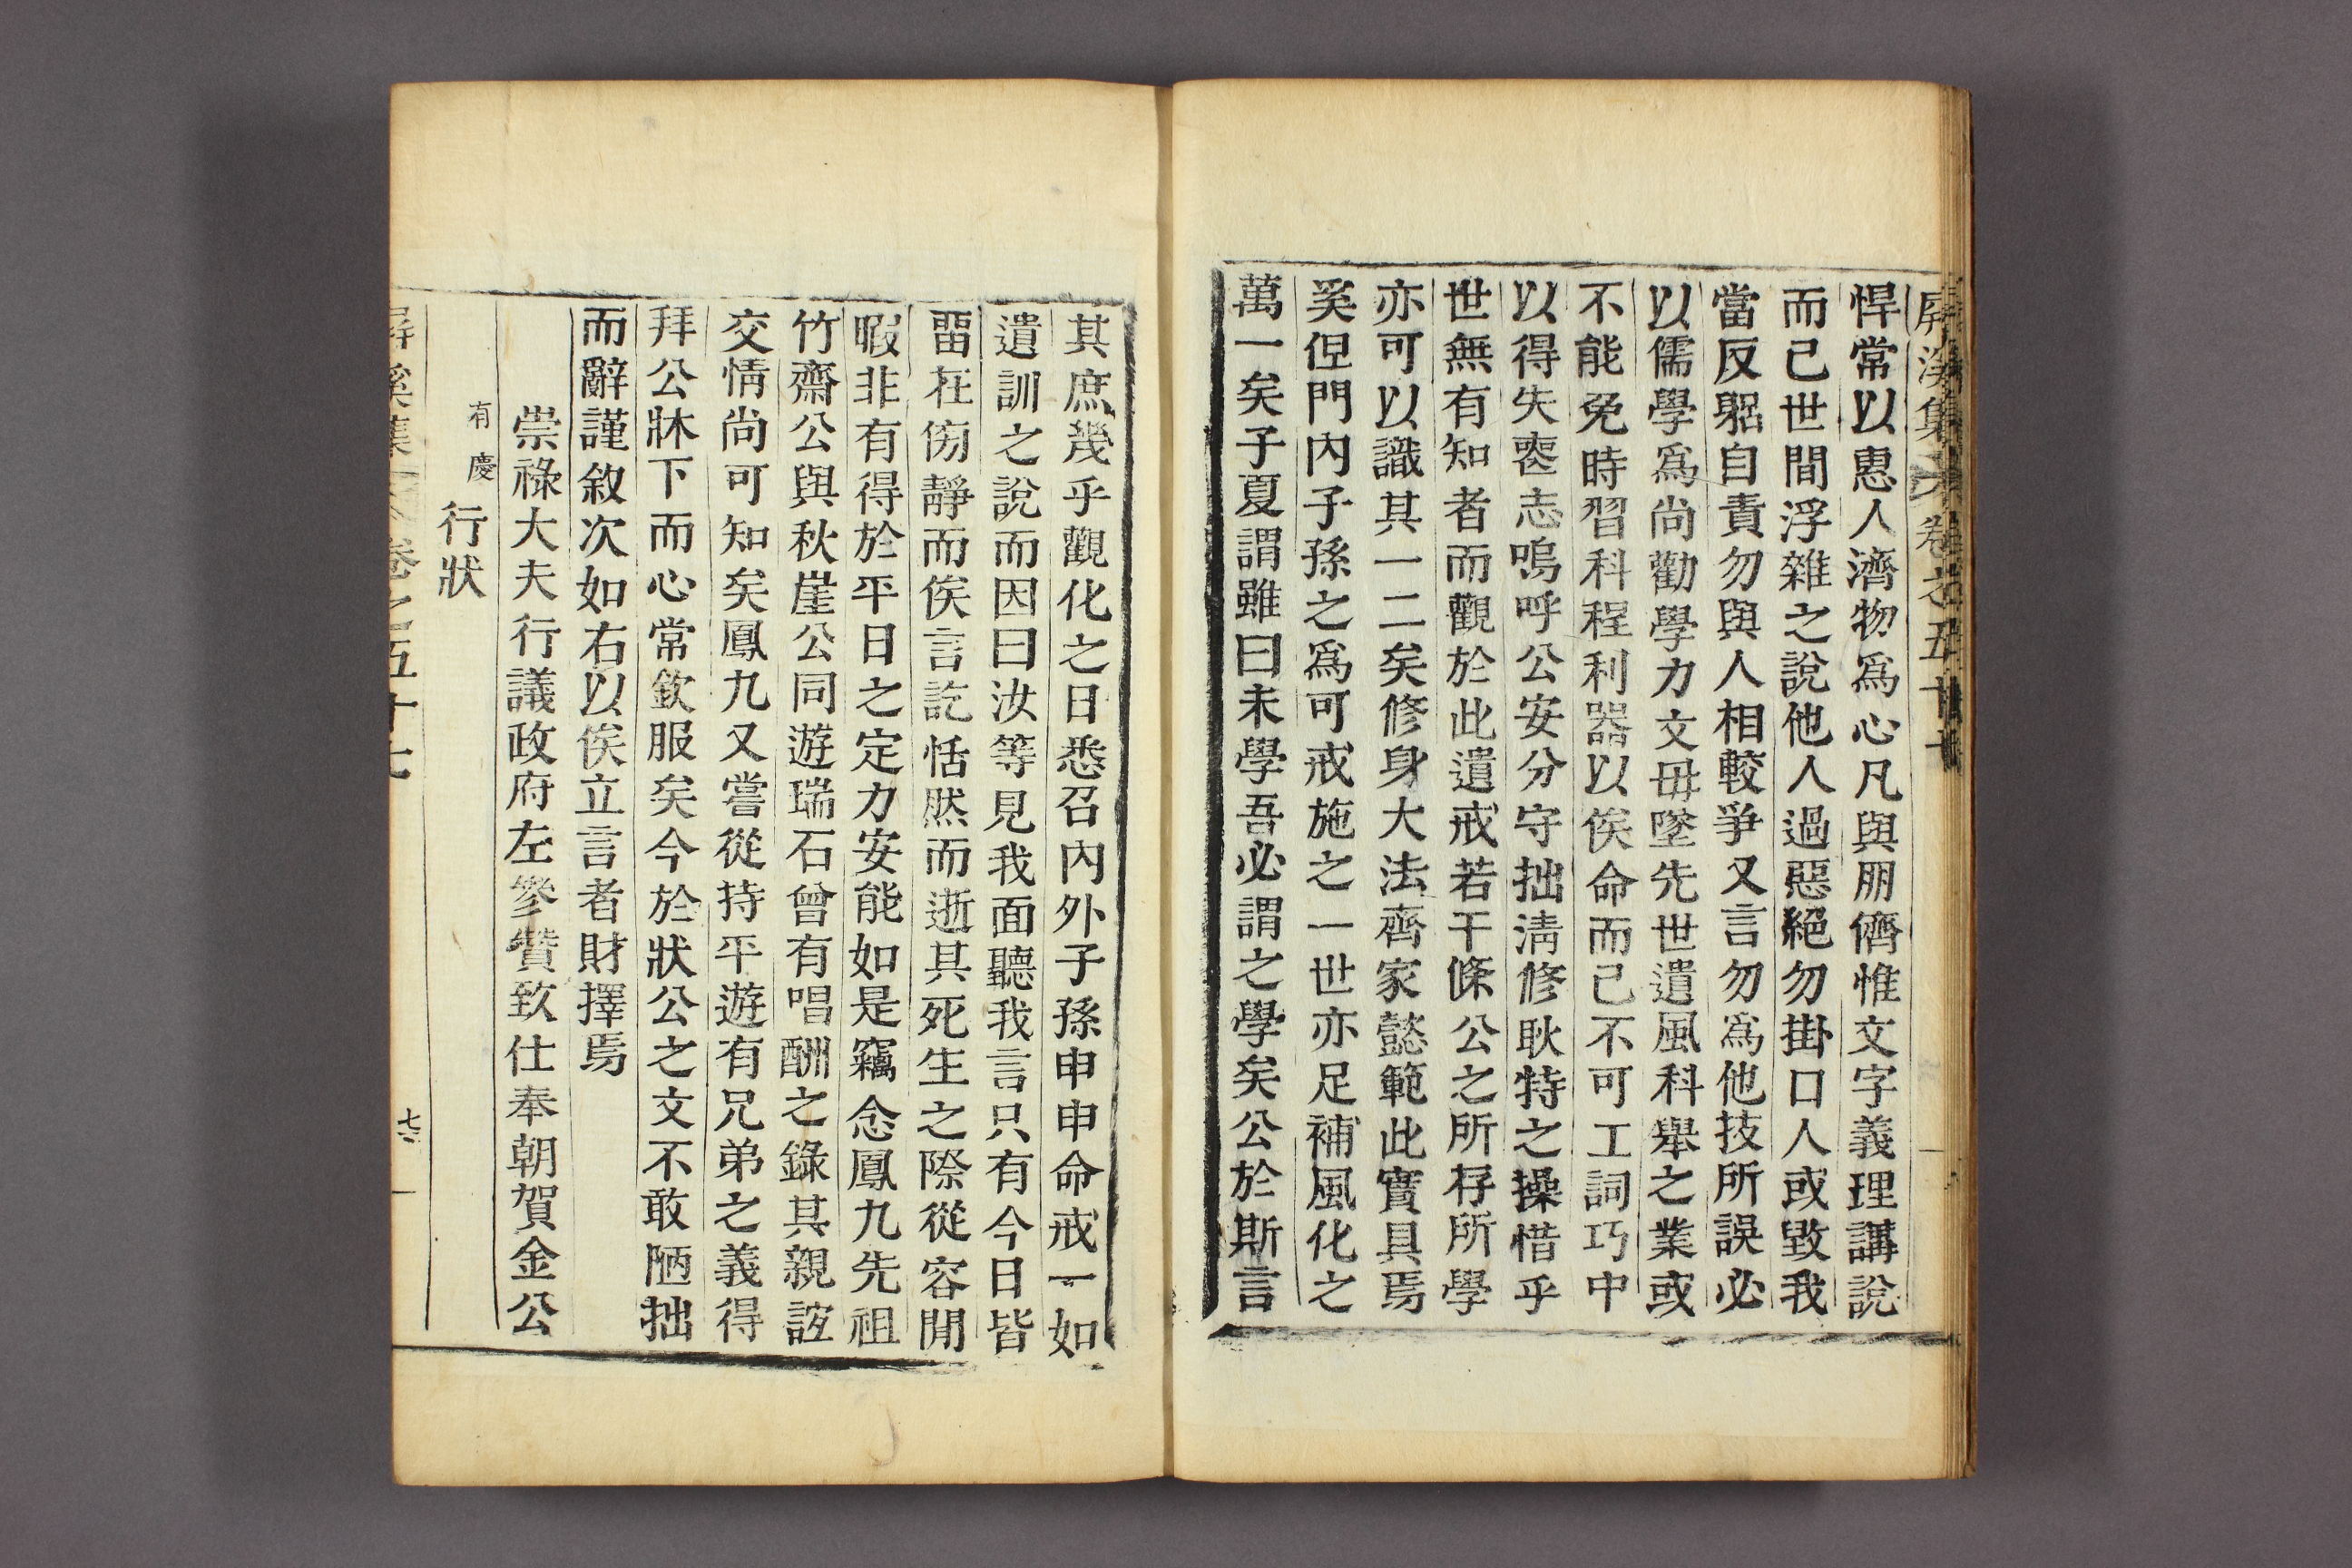 屛溪集 卷之五十七
悍常以惠人濟物爲心凡與朋儕惟文字義理講說
而已世間浮雜之說他人過惡絕勿掛口人或毀我
當反躬自責勿與人相較爭又言勿爲他技所誤必
以儒學爲尚勸學力文毋墜先世遺風科擧之業或
不能免時習科程利器以俟命而已不可工詞巧中
以得失喪志嗚呼公安分守拙淸修耿特之操惜乎
世無有知者而觀於此遺戒若干條公之所存所學
亦可以識其一二矣修身大法齊家懿範此實具焉
奚但門內子孫之爲可戒施之一世亦足補風化之
萬一矣子夏謂雖曰未學吾必謂之學矣公於斯言
其庶幾乎觀化之日悉召內外子孫申申命戒一如
遺訓之說而因曰汝等見我面聽我言只有今日皆
畱在傍靜而俟言訖恬然而逝其死生之際從容閒
暇非有得於平日之定力安能如是竊念鳳九先祖
竹齋公與秋崖公同遊瑞石曾有唱酬之錄其親誼
交情尚可知矣鳳九又嘗從持平遊有兄弟之義得
拜公牀下而心常欽服矣今於狀公之文不敢陋拙
而辭謹敘次如右以俟立言者財擇焉
崇祿大夫行議政府左參贊致仕奉朝賀金公
有慶 行狀
屛溪集 卷之五十七